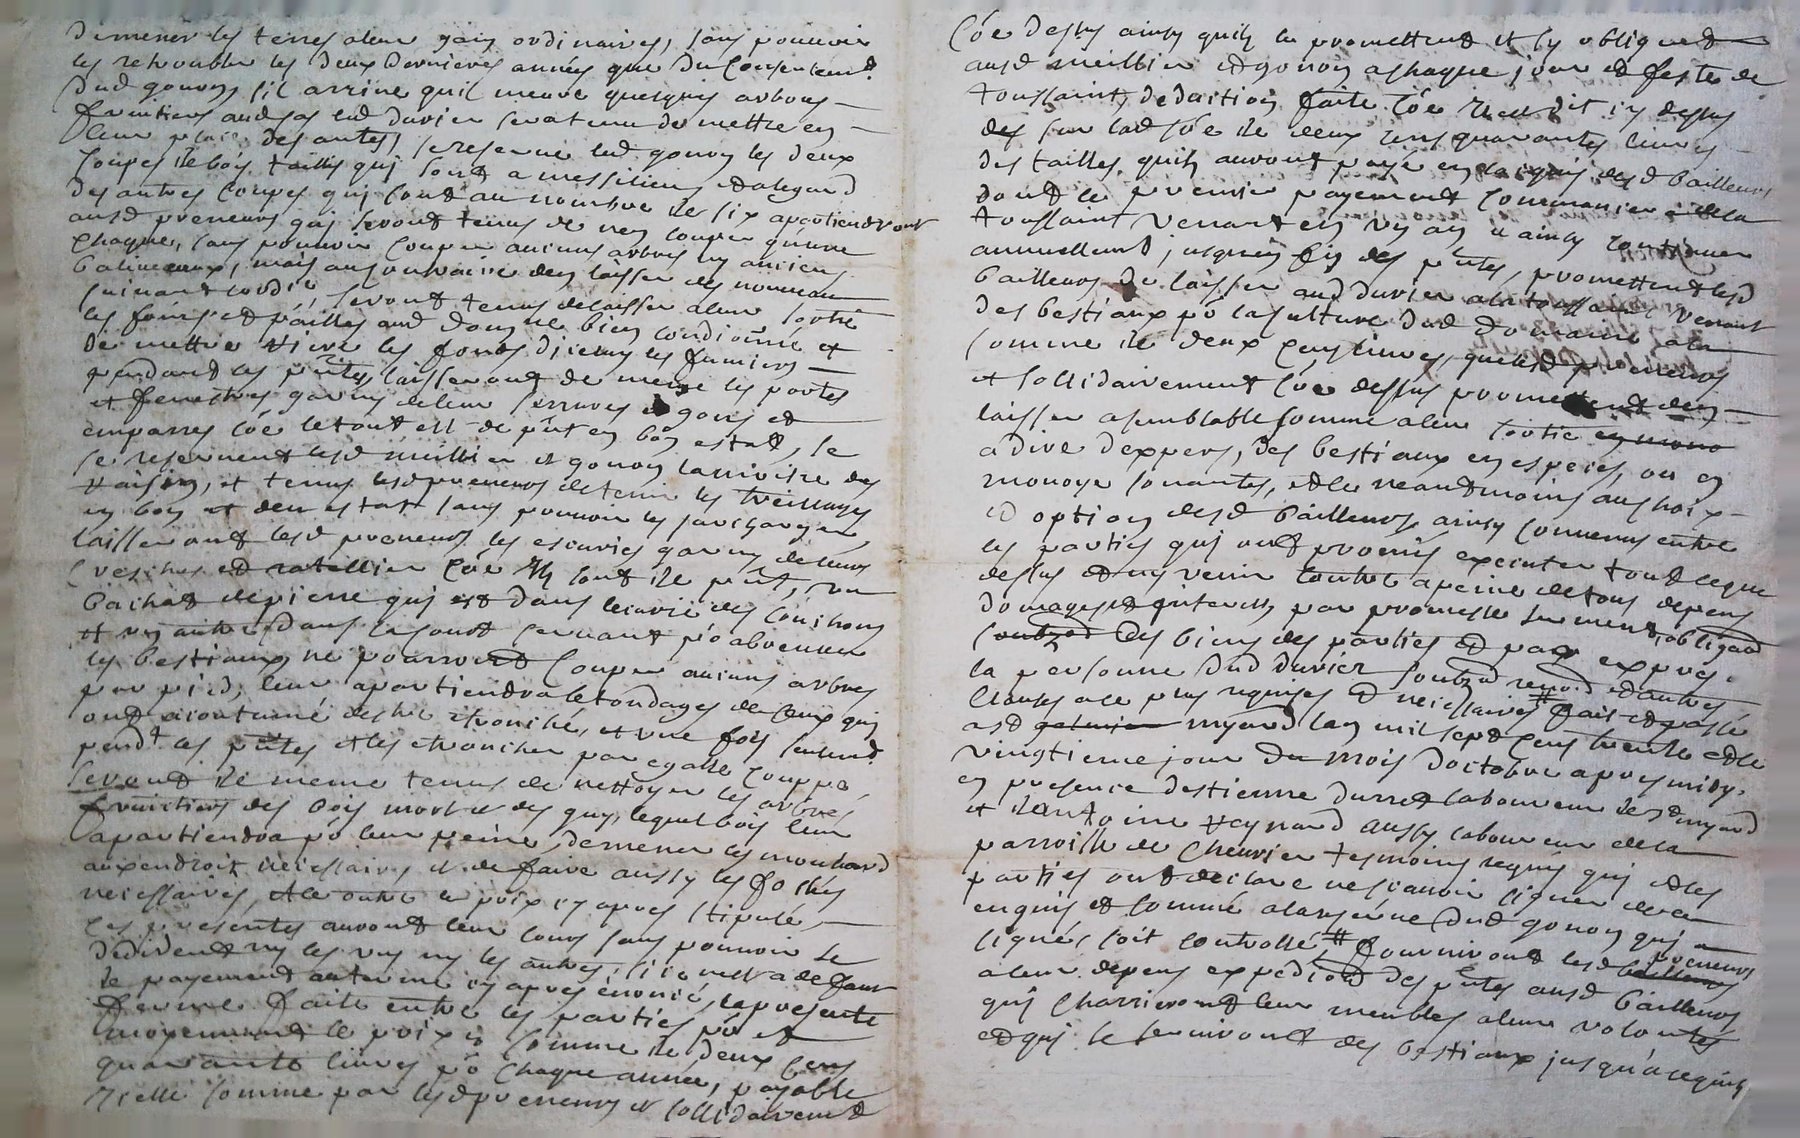 demener les terres a leur gain ordinaires, sans pouvoir
les rehoubler les deux dernieres années que du consentemt
dud gonon s'il arrive quil meure quelques arbres
fruitiers aud led duvier sera tenu de mettre en
leur place des autres, se reserve led gonon les deux
coupes de bois taillis qui sont a et alegard
des autres coupes qui sont au nombre de six apartiendront
ausd preneurs qui seront tenus de n'en couper qu'une
chaque, sans pouvoir couper aucuns arbres ny anciens
balivaux, mais au contraire den laisser des nouveaux
suivant lordce, seront tenus delaisser a leur sortie
les foins et pailles aud domaine bien conditionné et
de mettre vivre les fonds diceluy les fumiers
pendant les pntes, laisseront de meme les portes
et fenestres garnies de leur serrures gons et
emparres coe le tout est de pnt en bon estat, se
se reservent lesd meillier et gonon la moitie des
raisins, et tenus lesd preneurs de tenir les treillages
en bon et deu estat sans pouvoir les surcharger,
laisseront lesd preneurs les escuries garnies de leurs
creches et ratellier coe ils sont de pnt, un
bachat de pierre qui est dans lecurie des couchons
et un autre dans la court servant po abreuver
les bestiaux, ne pourront couper aucuns arbres
par pied, leur apartiendra le tondages de ceux qui
ont acoutumé destre etronché, et une fois seulemt
pendt les pntes et les etroncher par egalle couppe,
seront de meme tenus de nettoyer les arbres
fruictiers des bois mort et des guy, lequel bois leur
apartiendra po leur peine, demener les
aux endroit necessaires et de faire aussy les fosses
necessaires, et le outre le prix cy apres stipulé,
les presentes auront leur cours sans pouvoir se
dedire ny les uns ny les autres, sicomettra defaut
le payement au terme cy apres enoncé, la presente
ferme faite entre les parties po et
moyennant le prix et somme de deux cens
quarante livres po chaque année, payable
icelle somme par lesd preneurs et sollidairement
Coe dessus ainsy quils le promettent et sy obligent
ausd meillier et gonon a chaque jour et feste de
toussaint, deduction faite coe il est dit cy dessus
des sur lad soe de deux cens quarantes livres
des tailles, quils auront payé en lacquis desd bailleurs
dont le premier payement commencer a la
toussaint venant en un an et ainsy continuer
annuellemt jusquen fin des pntes, promettent lesd
bailleurs de laisser aud duvier a la toussaint venant
des bestiaux po la culture dud domaine a la
somme de deux cens livres, que lesd preneurs
et sollidairement coe dessus promettent den
laisser a semblable somme a leur sortie en mono
a dire d'expers, des bestiaux en especes, ou en
monoye sonantes, et le neantmoins au choix
et option desd bailleurs, ainsy convenus entre
les parties qui ont promis executer tout ce que
dessus et ny venir contre a peine de tous depens
domages et interest, par promesse serment, obligaon
soubzon des biens des parties et par expres
la personne dud duvier soubzon renoon et autres
clauses a ce plus requises et necessaires # fait et passé
asd myard lan mil sept cens trente et le
vingtieme jour du mois doctobre apres midy.
en presence destienne durret laboureur de sd myard
et dantoine reynard aussy laboureur de la
parroisse de chenrier tesmoins requis qui et les
parties ont declaré ne scavoir signer de ce
enquis et sommé a la reserve dud gonon qui a
signé, soit controllé # fourniront lesd preneurs
a leur depens expedion des pntes ausd bailleurs
qui charrieront leur meubles a leur volontes
et qui se serviront des bestiaux jusqu'a ce quils